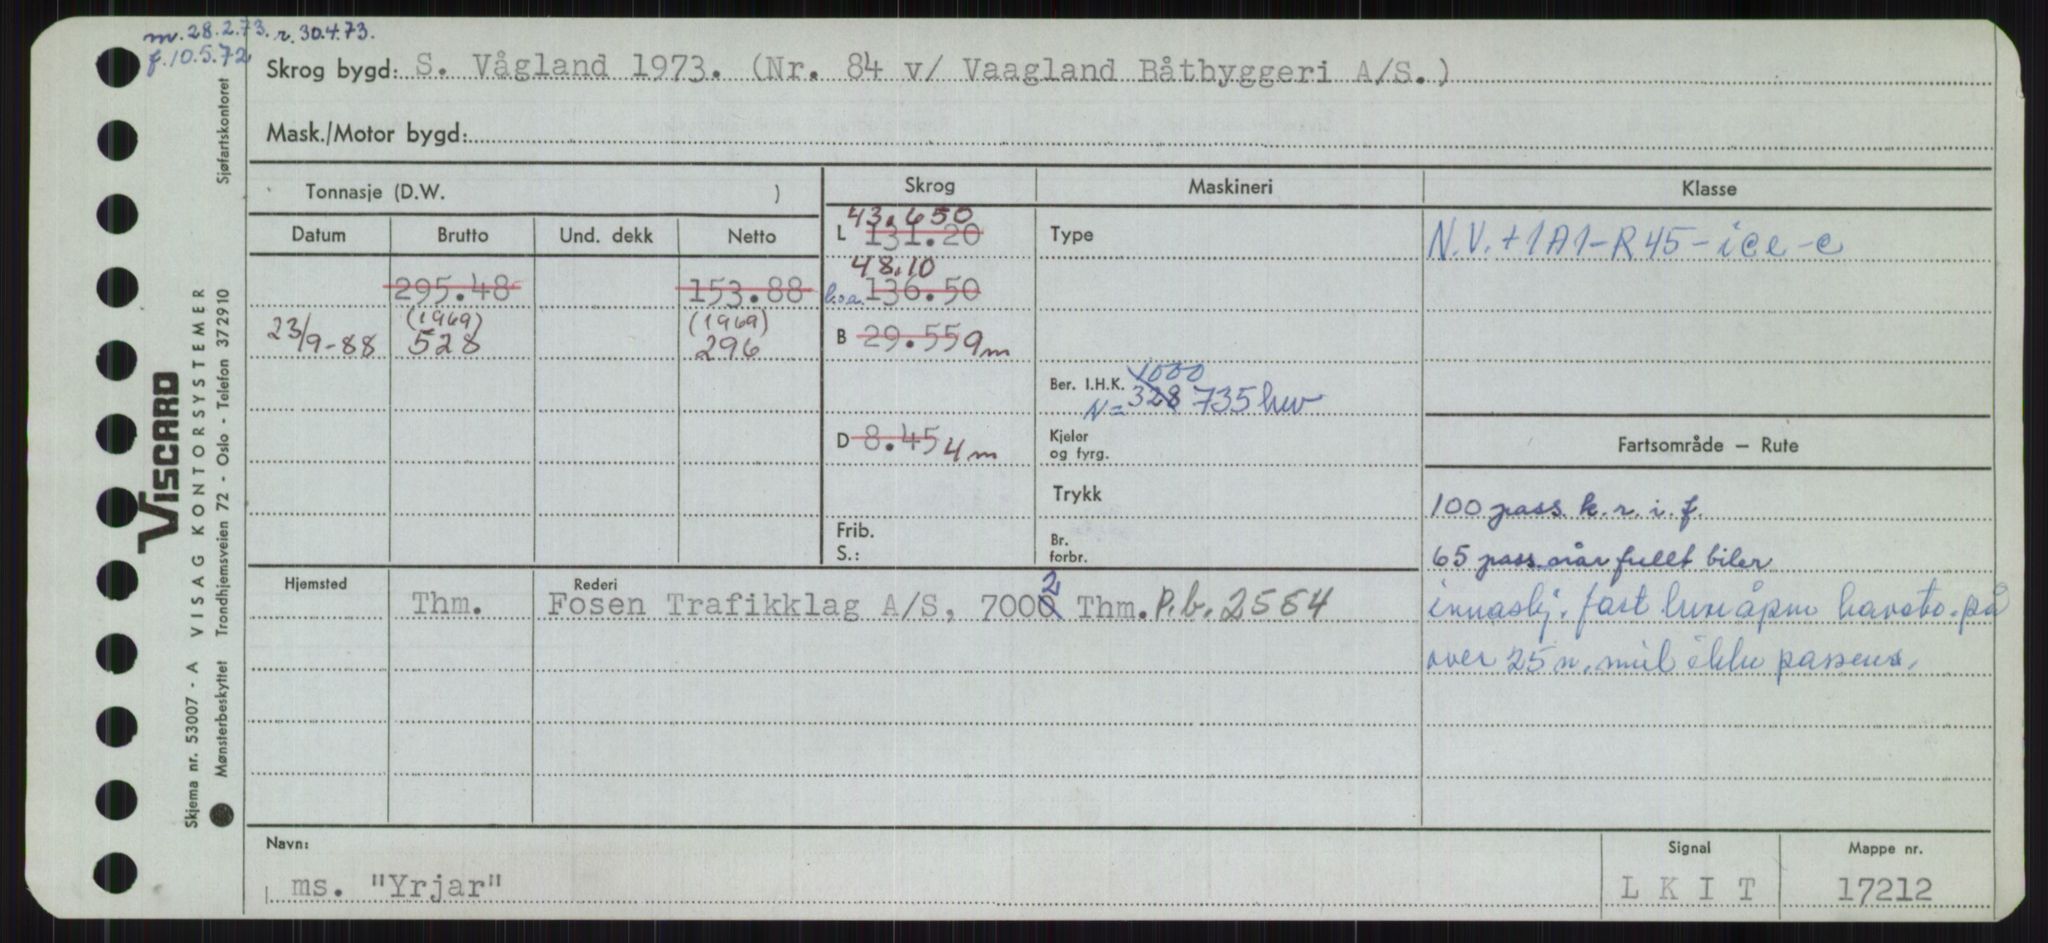 m. 28.2.73. r. 30.4.73.
f. 10.5.72
Skrog bygd: S. Vågland 1973. (Nr. 84 v/ Vaagland Båtbyggeri A/S.)
Mask./Motor bygd:
Tonnasje (D.W. )
Skrog
Maskineri
Klasse
Datum
Brutto
Und. dekk
Netto
43.650
L 131.20
Type
N.V. + 1A1-R45-ice-c
48.10
295.48
153.88
l.o.a. 136.50
(1969)
(1969)
23/9-88
528
296
B 29.55 9m
1000
Ber. I.H.K.
N= 328 735 kw
D 8.45 4m
Kjeler og fyrg.
Fartsområde — Rute
Trykk
100 pass. k. r. i. f.
Frib.
S.:
Br. forbr.
65 pass. når fullt biler
Hjemsted
Rederi
Thm.
Fosen Trafikklag A/S, 7000 2 Thm. P.b. 2554
innaskj. fart åpne havstr. på
over 25 n. mil ikke
Navn:
ms. "Yrjar"
Signal
L K I T
Mappe nr.
17212
VISCARD
Skjema nr. 53007 - A VISAG KONTORSYSTEMER
Mønsterbeskyttet Trondhjemsveien 72 - Oslo - Telefon 372910 Sjøfartskontoret